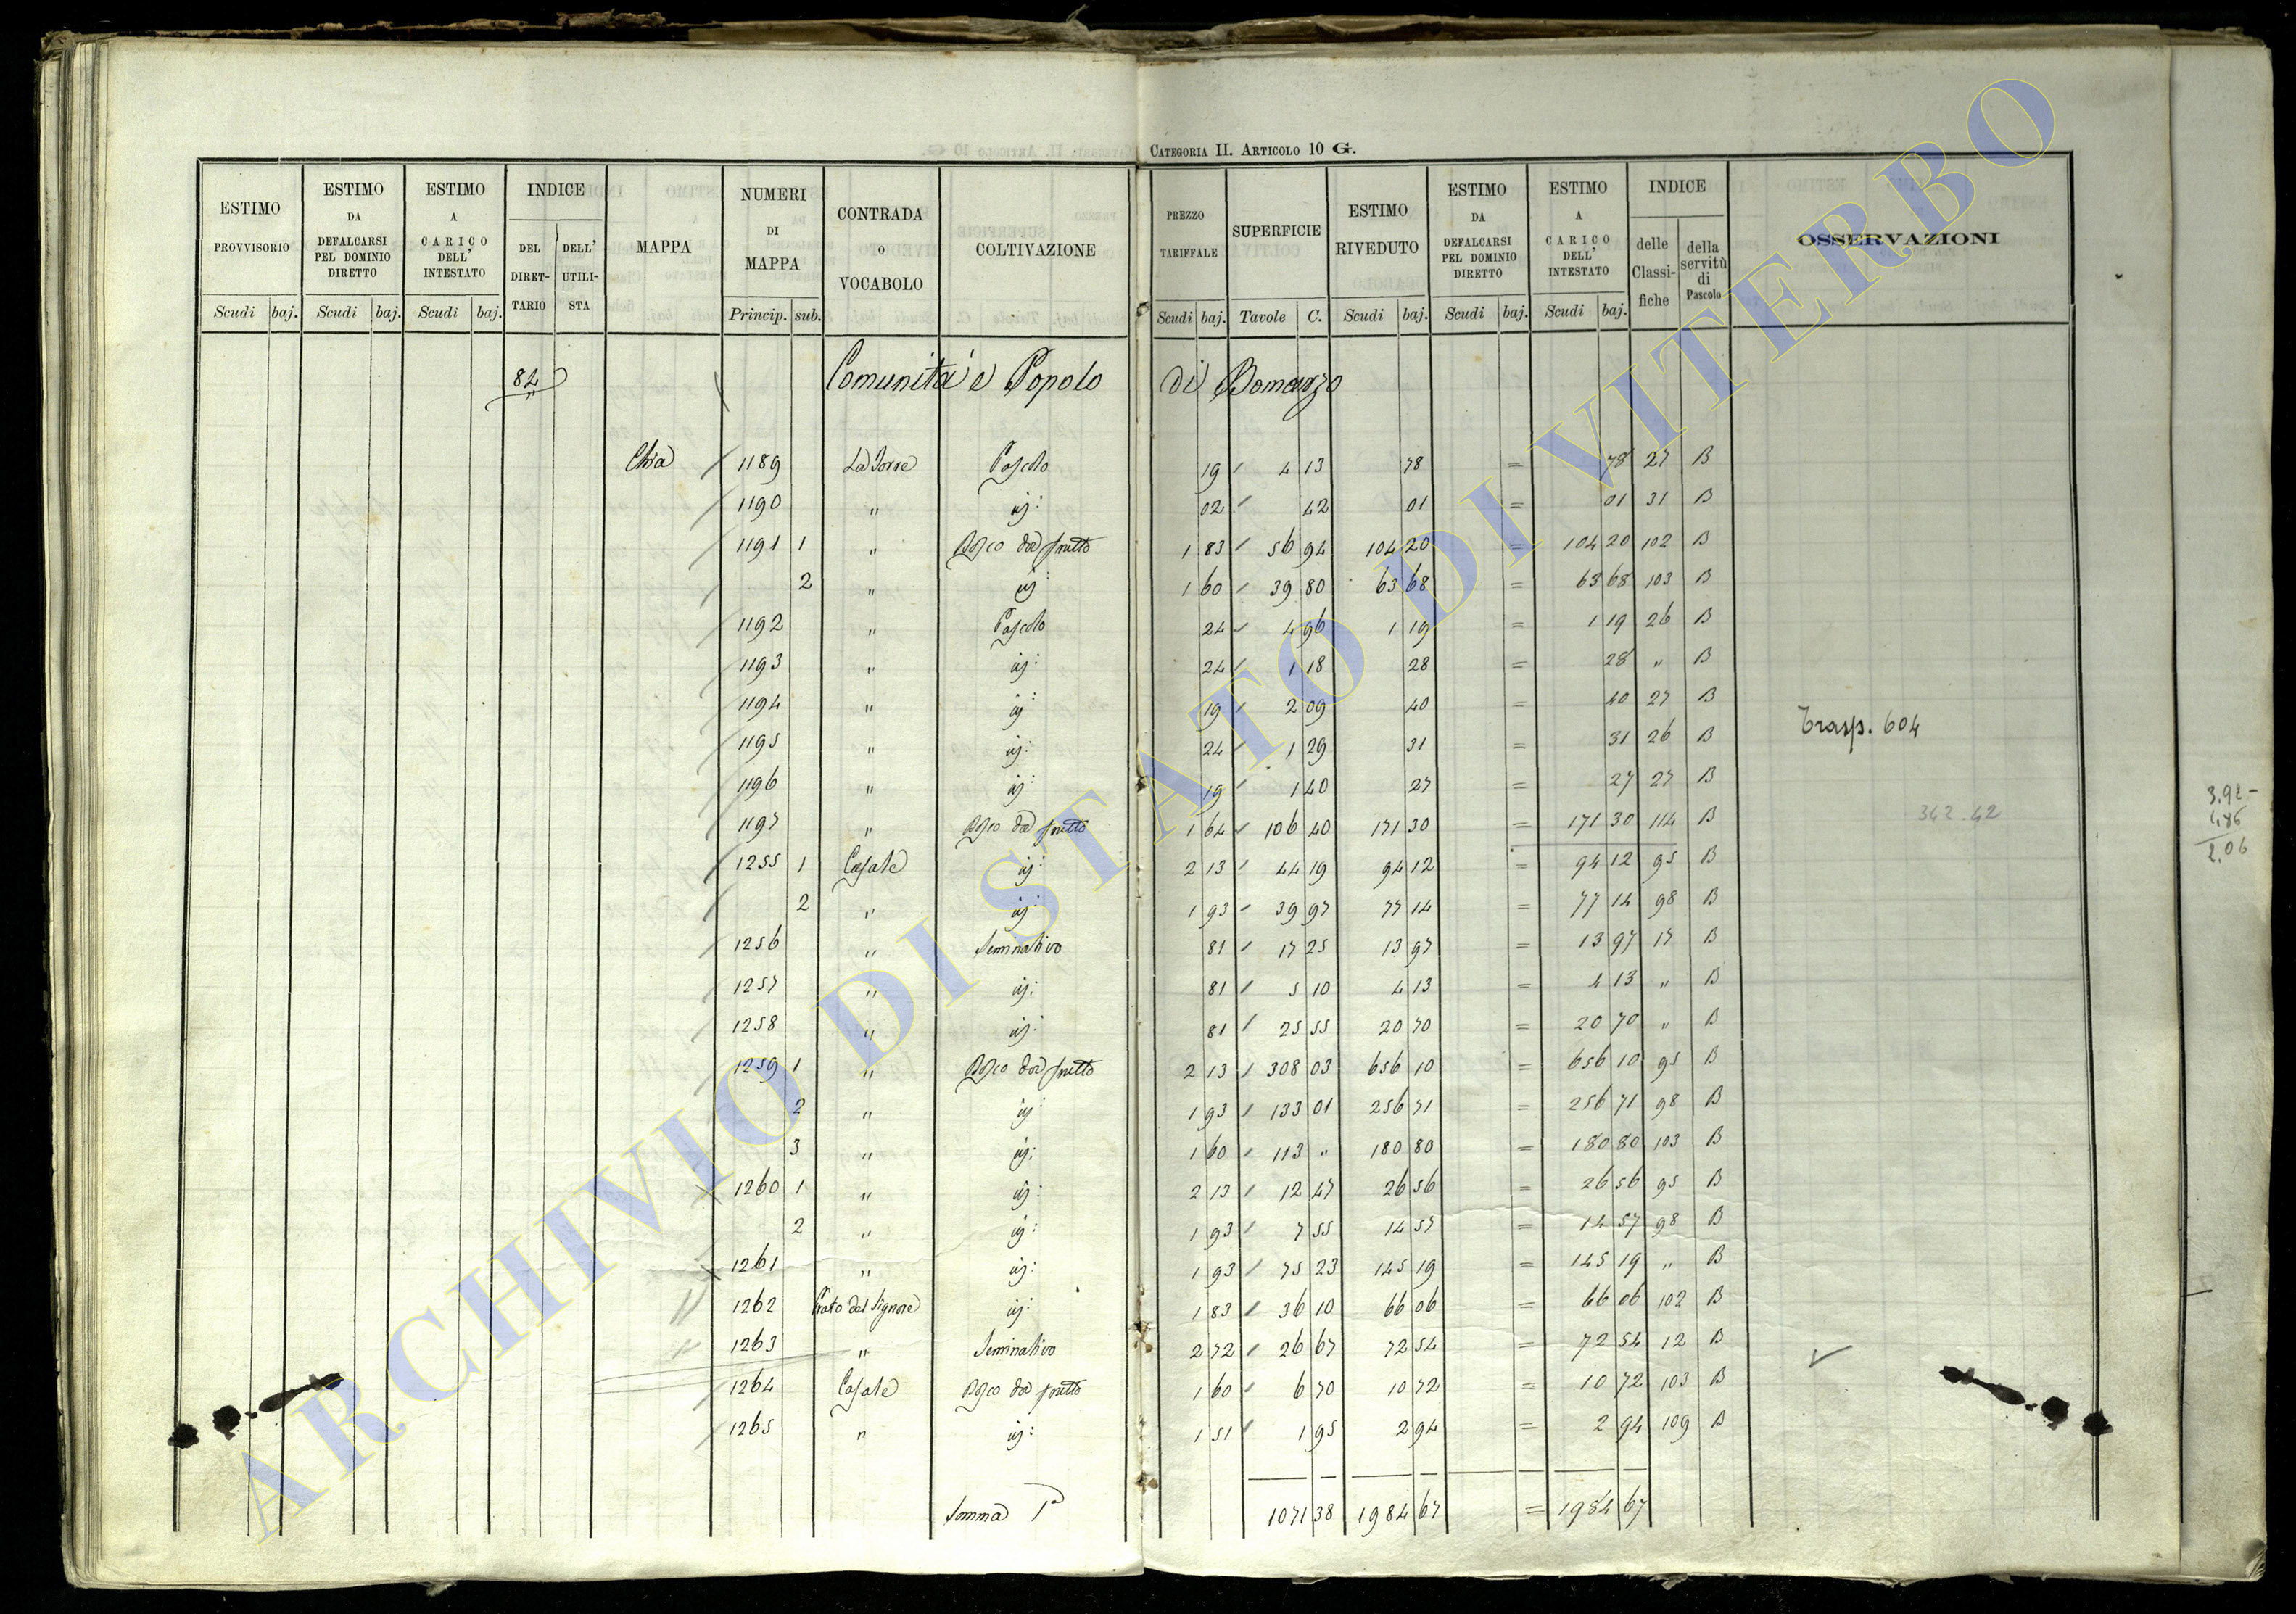 CATEGORIA II. ARTICOLO 10 G.
ESTIMO PROVVISORIO | ESTIMO DA DEFALCARSI PEL DOMINIO DIRETTO | ESTIMO A CARICO DELL' INTESTATO | INDICE DEL DIRETTARIO | DELL' UTILISTA | MAPPA | NUMERI DI MAPPA | CONTRADA O VOCABOLO | COLTIVAZIONE | PREZZO TARIFFALE | SUPERFICIE | ESTIMO RIVEDUTO | ESTIMO DA DEFALCARSI PEL DOMINIO DIRETTO | ESTIMO A CARICO DELL' INTESTATO | INDICE delle Classifiche | della servitù di Pascolo | OSSERVAZIONI
Scudi baj. | Scudi baj. | Scudi baj. | Princip. sub. | Scudi baj. | Tavole C. | Scudi baj. | Scudi baj. | Scudi baj.
84 Comunità e Popolo di Bomarzo
Chia 1189 La Torre Pascolo 19 4 13 78 = 78 27 B
1190 " id: 02 42 01 = 01 31 B
1191 1 " Bosco da frutto 1 83 56 94 104 20 = 104 20 102 B
2 " id: 1 60 39 80 63 68 = 63 68 103 B
1192 " Pascolo 24 4 96 1 19 = 1 19 26 B
1193 " id: 24 1 18 28 = 28 " B
1194 " id: 19 2 09 40 = 40 27 B
1195 " id: 24 1 29 31 = 31 26 B Trasp. 604
1196 " id: 19 1 40 27 = 27 27 B
1197 " Bosco da frutto 1 64 106 40 171 30 = 171 30 114 B 342.42
1255 1 Casale id: 2 13 44 19 94 12 = 94 12 95 B
2 " id: 1 93 39 97 77 14 = 77 14 98 B
1256 " Seminativo 81 17 25 13 97 = 13 97 17 B
1257 " id: 81 5 10 4 13 = 4 13 " B
1258 " id: 81 25 55 20 70 = 20 70 " B
1259 1 " Bosco da frutto 2 13 308 03 656 10 = 656 10 95 B
2 " id: 1 93 133 01 256 71 = 256 71 98 B
3 " id: 1 60 113 " 180 80 = 180 80 103 B
1260 1 " id: 2 13 12 47 26 56 = 26 56 95 B
2 " id: 1 93 7 55 14 57 = 14 57 98 B
1261 " id: 1 93 75 23 145 19 = 145 19 " B
1262 Prato del Signore id: 1 83 36 10 66 06 = 66 06 102 B
1263 " Seminativo 2 72 26 67 72 54 = 72 54 12 B
1264 Casale Bosco da frutto 1 60 6 70 10 72 = 10 72 103 B
1265 " id: 1 51 1 95 2 94 = 2 94 109 B
Somma 1a 1071 38 1984 67 = 1984 67
3.92 -
1.86
2.06
ARCHIVIO DI STATO DI VITERBO